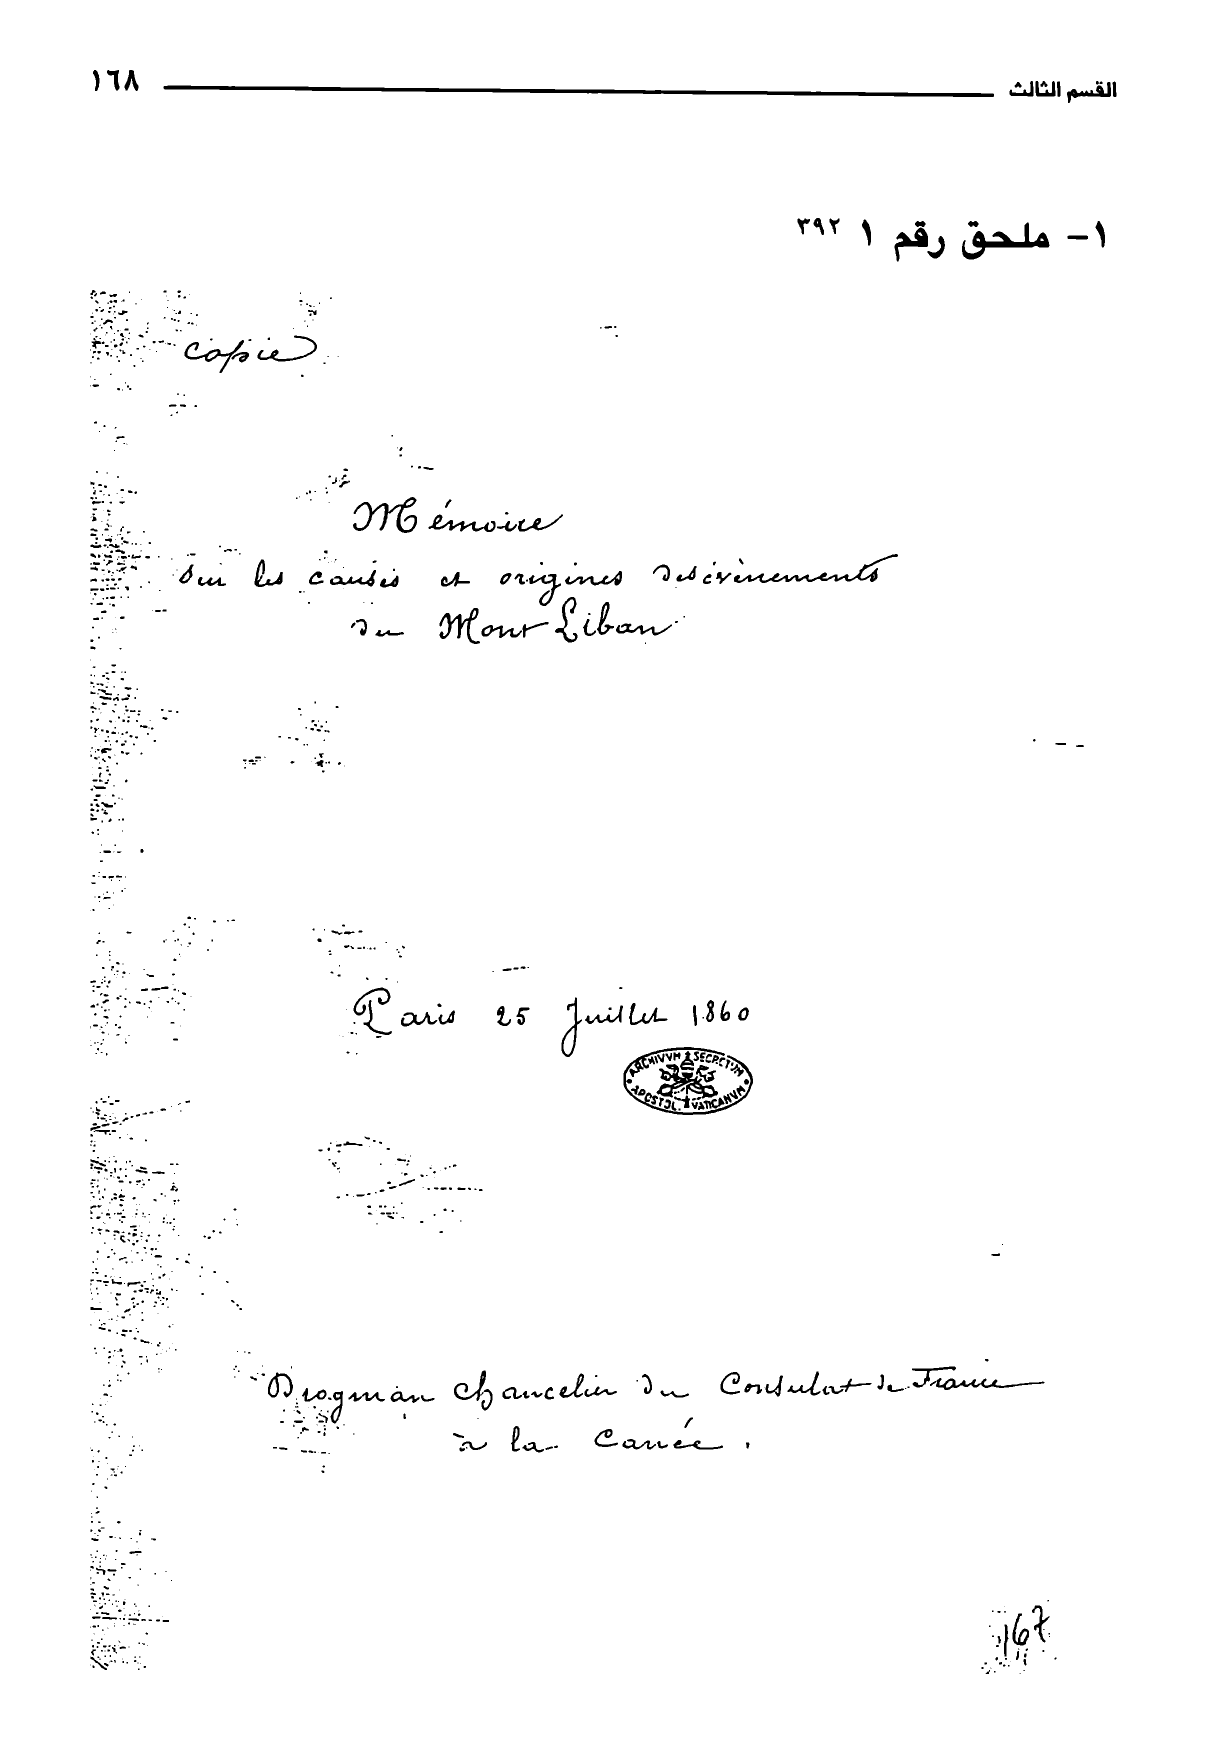 القسم الثالث ١٦٨
١- ملحق رقم ١ ٣٩٢
Copie
Mémoire
Sur les causes et origines des évènements
du Mont Liban
Paris 25 Juillet 1860
ARCHIVVM SECRETVM APOSTOL. VATICANVM
Drogman Chancelier du Consulat de France
à la Canée.
167